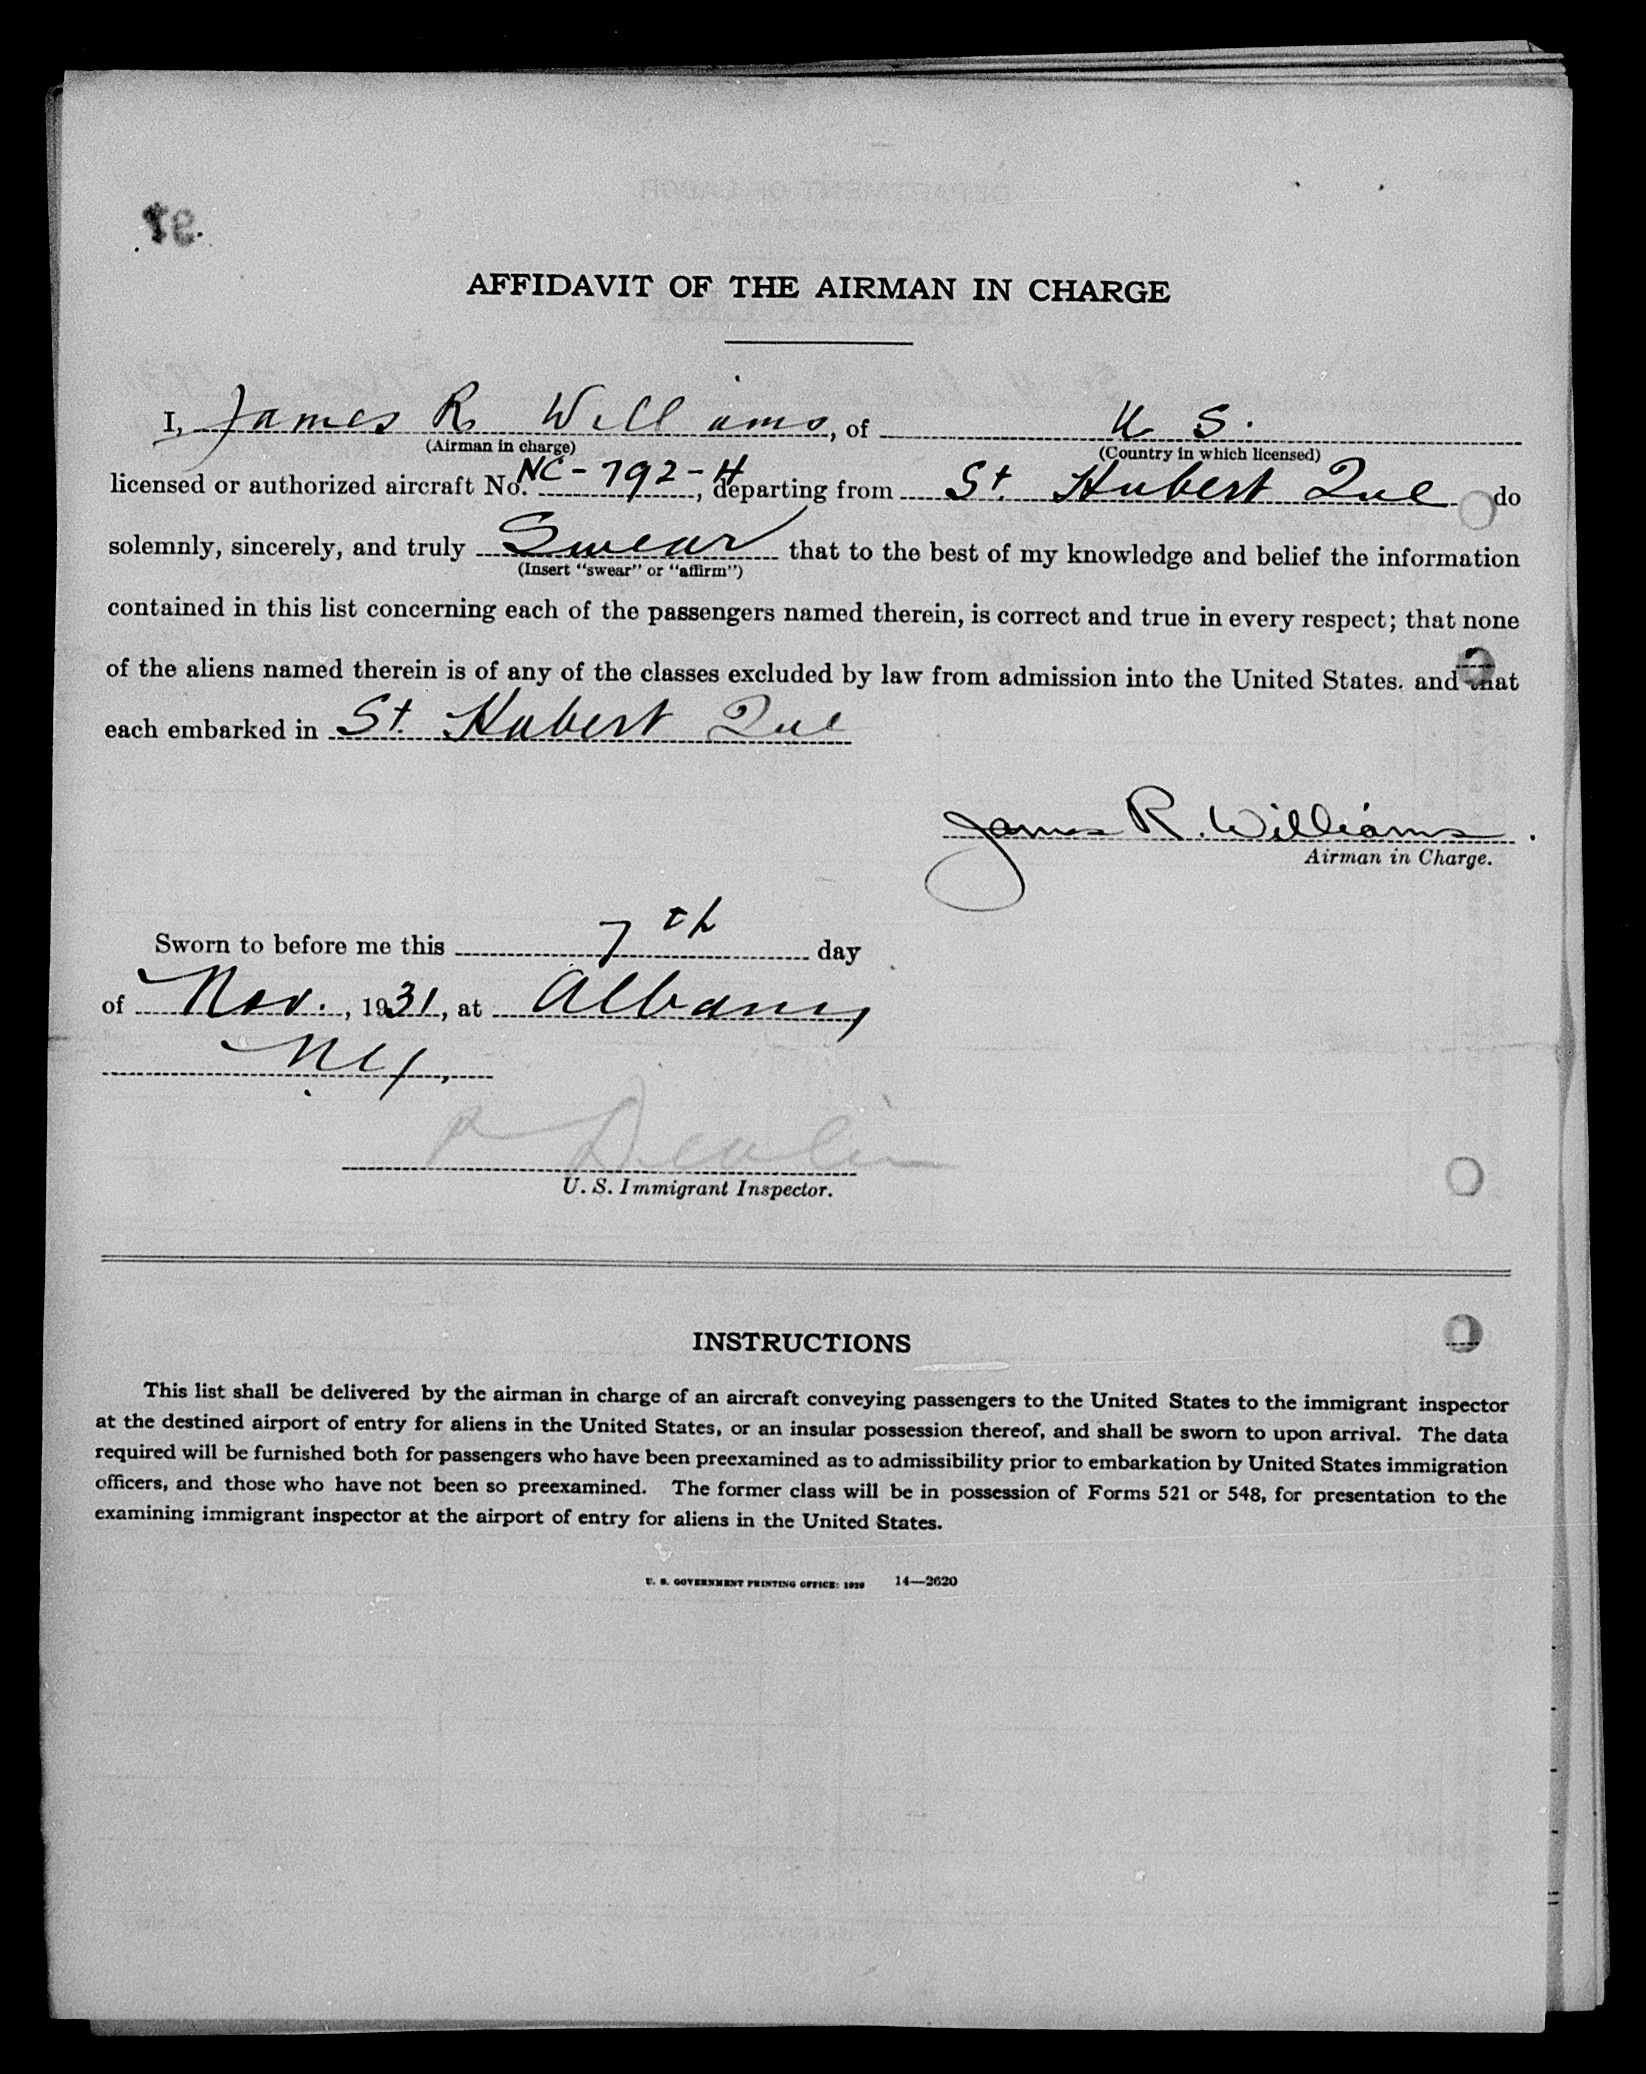 AFFIDAVIT OF THE AIRMAN IN CHARGE
I, James R Williams, of U S.
(Airman in charge) (Country in which licensed)
licensed or authorized aircraft No. NC-792-H, departing from St. Hubert Que do
solemnly, sincerely, and truly Swear that to the best of my knowledge and belief the information
(Insert "swear" or "affirm")
contained in this list concerning each of the passengers named therein, is correct and true in every respect; that none
of the aliens named therein is of any of the classes excluded by law from admission into the United States. and that
each embarked in St. Hubert Que
James R. Williams.
Airman in Charge.
Sworn to before me this 7th day
of Nov., 1931, at Albany
NY,
U. S. Immigrant Inspector.
INSTRUCTIONS
This list shall be delivered by the airman in charge of an aircraft conveying passengers to the United States to the immigrant inspector
at the destined airport of entry for aliens in the United States, or an insular possession thereof, and shall be sworn to upon arrival. The data
required will be furnished both for passengers who have been preexamined as to admissibility prior to embarkation by United States immigration
officers, and those who have not been so preexamined. The former class will be in possession of Forms 521 or 548, for presentation to the
examining immigrant inspector at the airport of entry for aliens in the United States.
U. S. GOVERNMENT PRINTING OFFICE: 1929 14—2620